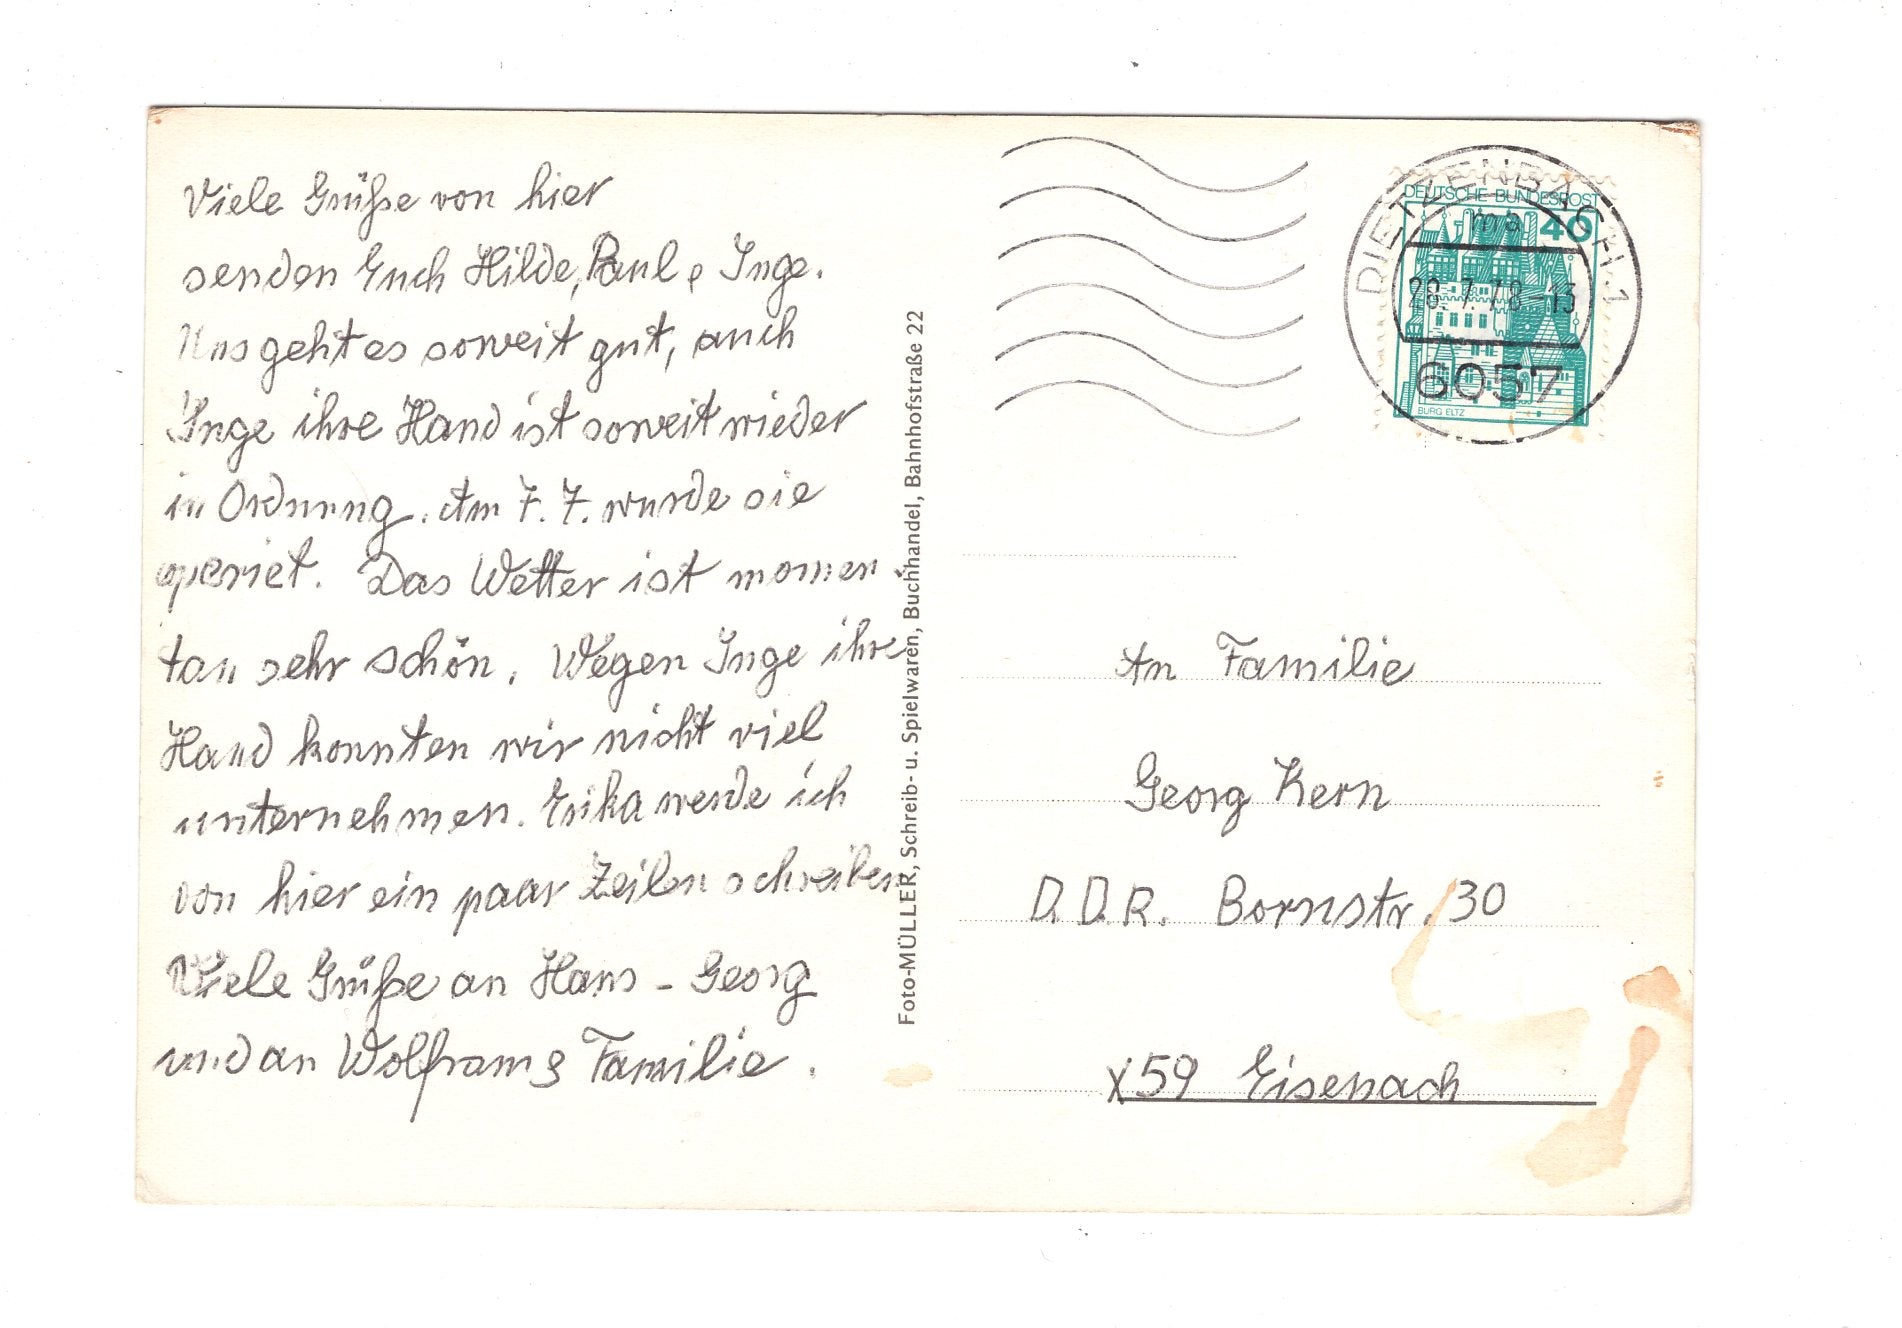 Viele Grüße von hier
senden Euch Hilde, Paul e Inge.
Uns geht es soweit gut, auch
Inge ihre Hand ist soweit wieder
in Ordnung. Am 7. 7. wurde sie
operiet. Das Wetter ist momen-
tan sehr schön. Wegen Inge ihre
Hand konnten wir nicht viel
unternehmen. Erika werde ich
von hier ein paar Zeilen schreiben
Viele Grüße an Hans - Georg
und an Wolframs Familie.
Foto-MÜLLER, Schreib- u. Spielwaren, Buchhandel, Bahnhofstraße 22
DEUTSCHE BUNDESPOST
40
BURG ELTZ
DIETZENBACH 1
ma
28. 7. 78-13
6057
An Familie
Georg Kern
D.D.R. Bornstr. 30
X59 Eisenach